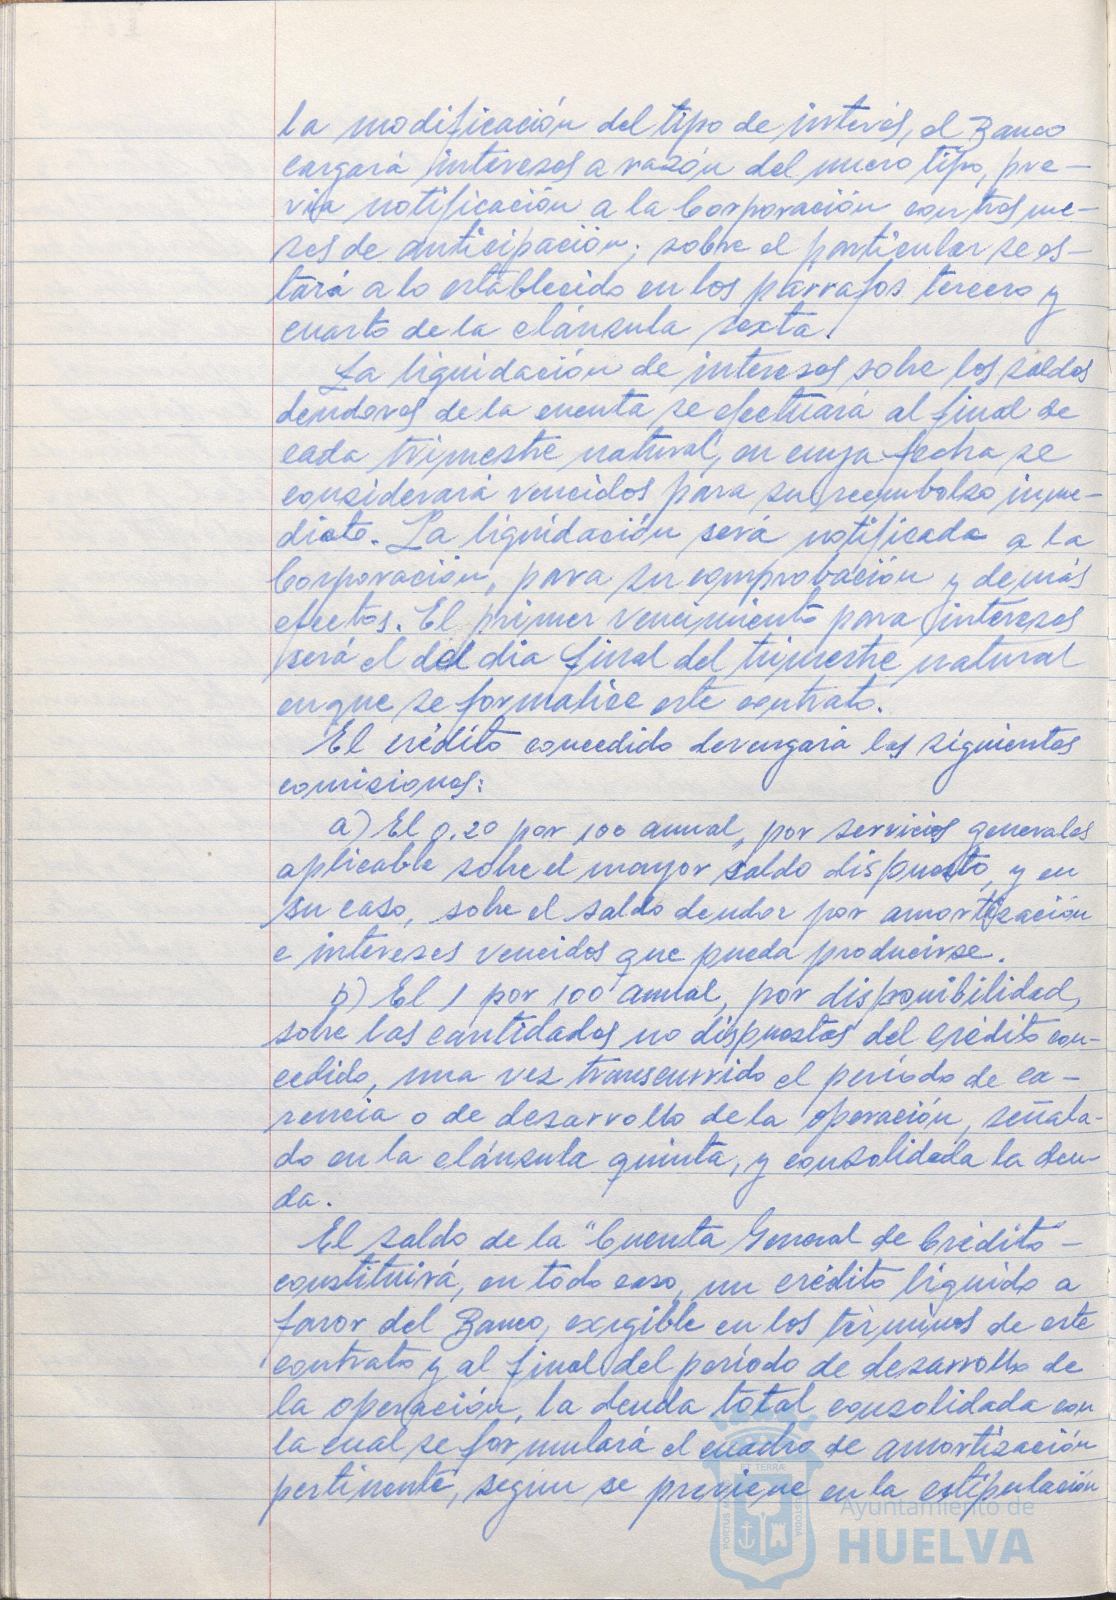 la modificación del tipo de interés, el Banco
cargará intereses a razón del nuevo tipo, pre-
via notificación a la Corporación con tres me-
ses de anticipación; sobre el particular se es-
tará a lo establecido en los párrafos tercero y
cuarto de la cláusula sexta.
La liquidación de intereses sobre los saldos
deudores de la cuenta se efectuará al final de
cada trimestre natural, en cuya fecha se
considerará vencidos para su reembolso inme-
diato. La liquidación será notificada a la
Corporación, para su comprobación y demás
efectos. El primer vencimiento para intereses
será el del dia final del trimestre natural
en que se formalice este contrato.
El crédito concedido devengará las siguientes
comisiones:
a) El 0.20 por 100 anual, por servicios generales
aplicable sobre el mayor saldo dispuesto, y en
su caso, sobre el saldo deudor por amortización
e intereses vencidos que pueda producirse.
b) El 1 por 100 anual, por disponibilidad,
sobre las cantidades no dispuestas del crédito con-
cedido, una vez transcurrido el período de ca-
rencia o de desarrollo de la operación, señala-
do en la cláusula quinta, y consolidada la deu-
da.
El saldo de la "Cuenta General de Crédito" -
constituirá, en todo caso, un crédito líquido a
favor del Banco, exigible en los términos de este
contrato y al final del período de desarrollo de
la operación, la deuda total consolidada con
la cual se formulará el cuadro de amortización
pertinente, según se previene en la estipulación
Ayuntamiento de
HUELVA